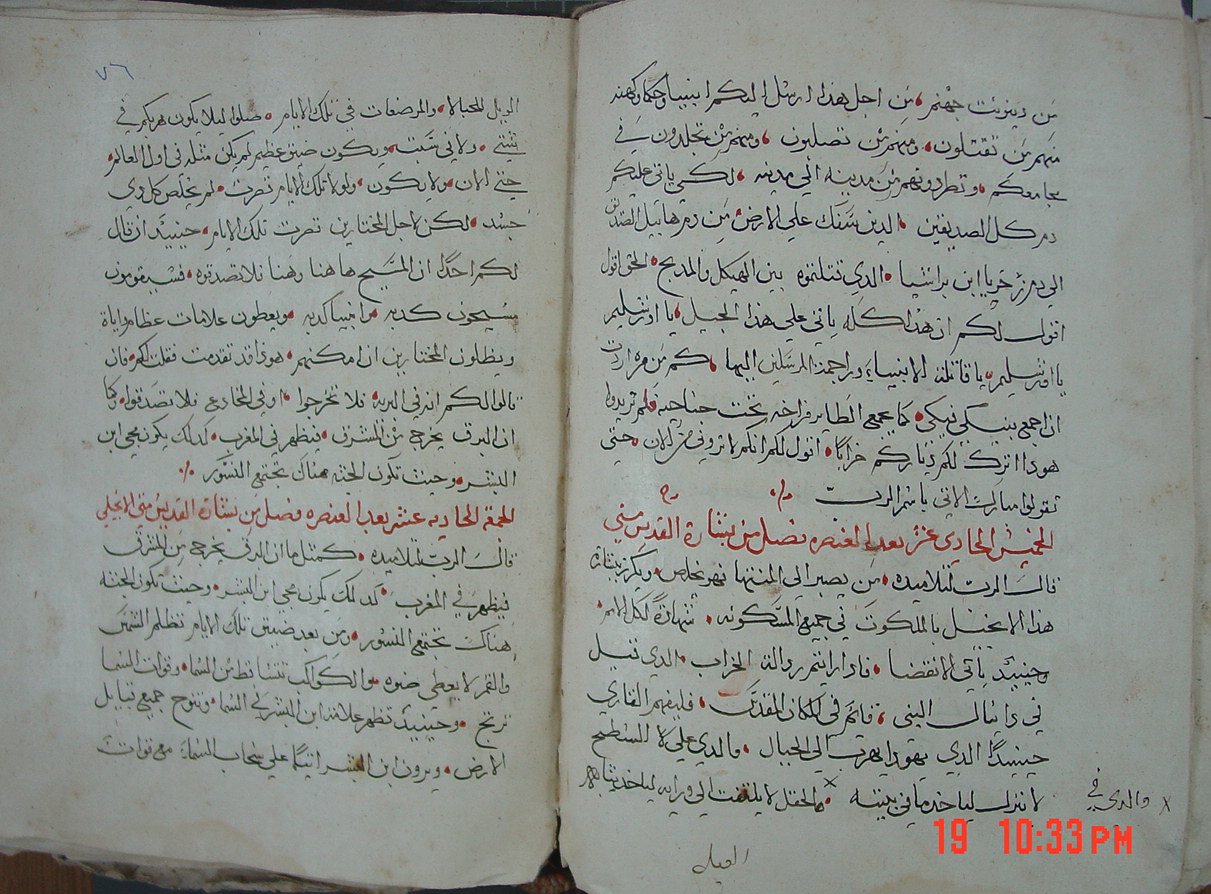 من دينونت جهنم من اجل هذا ارسل اليكم انبيا وحكما وكهنه
منهم من تقتلون ومنهم من تصلبون ومنهم من تجلدون في
مجامعكم وتطردونهم من مدينه الي مدينه لكي ياتي عليكم
دم كل الصديقين الدين سفك علي الارض من دم هابيل الصديق
الي دم زخريا ابن براشيا الدي قتلتموه بين الهيكل والمدبح الحق اقول
اقول لكم ان هذا كله ياتي علي هذا الجيل يا اورشليم
يا اورشليم يا قاتلة الانبيا وراجمة المرسلين اليها كم من مره اردت
ان اجمع بنيكي فيكي كما يجمع الطاير فراخه تحت جناحيه فلم تريدوا
هودا اترك لكم دياركم خرابا اقول لكم انكم لا تروني من الان حتي
تقولوا مبارك الاتي باسم الرب
الخميس الحادي عشر بعد العنصره فصل من بشارة القديس متي
قال الرب لتلاميده من يصبر الي المنتها فهو يخلص ويكرز ببشارة
هذا الانجيل بالملكوت في جميع المسكونه شهادة لكل الامم
وحينيد ياتي الانقضا فادا رايتم ردالة الخراب الدي قيل
في دانيال النبي قايم في المكان المقدس فليفهم القاري
حينيدا الدي بيهودا يهرب الي الجبال والدي علي السطح
لا ينزل لياخد ما في بيته الحقل لا يلتفت الي ورايه لياخد ثيابه
× والدي في
الويل
19 10:33 PM
٧٦
الويل للحبالا والمرضعات في تلك الايام صلوا ليلا يكون هربكم في
شتي ولا في سبت ويكون ضيق عظيم لم يكن مثله في اول العالم
حتي الان ولا يكون ولولا تلك الايام قصرت لم يخلص كل دي
جسد لكن لاجل المختارين قصرت تلك الايام حينيد ان قال
لكم احدا ان المسيح هاهنا وهنا فلا تصدقوه فسيقومون
مسيحون كدبه وانبيا كدبه ويعطون علامات عظام واياة
ويظلون المختارين ان امكنهم هودا قد تقدمت فقلت لكم فان
قالوا لكم انه في البريه فلا تخرجوا او في المخادع فلا تصدقوا وكما
ان البرق يخرج من المشرق فيظهر في المغرب كدلك يكون مجي ابن
البشر وحيت تكون الجثه هناك تجتمع النسور
الجمعة الحاديه عشر بعد العنصره فصل من بشارة القديس متي الانجيلي
قال الرب لتلاميده كمثل ما ان البرق يخرج من المشرق
فيظهر في المغرب كدلك يكون مجي ابن البشر وحيت تكون الجثه
هناك تجتمع النسور ومن بعد ضيق تلك الايام تظلم الشمس
والقمر لا يعطي ضوه والكواكب تتساقط من السما وقوات السما
ترتج وحينيد تظهر علامة ابن البشر في السما وتنوح جميع قبايل
الارض ويرون ابن البشر اتيا علي سحاب السما مع قوات